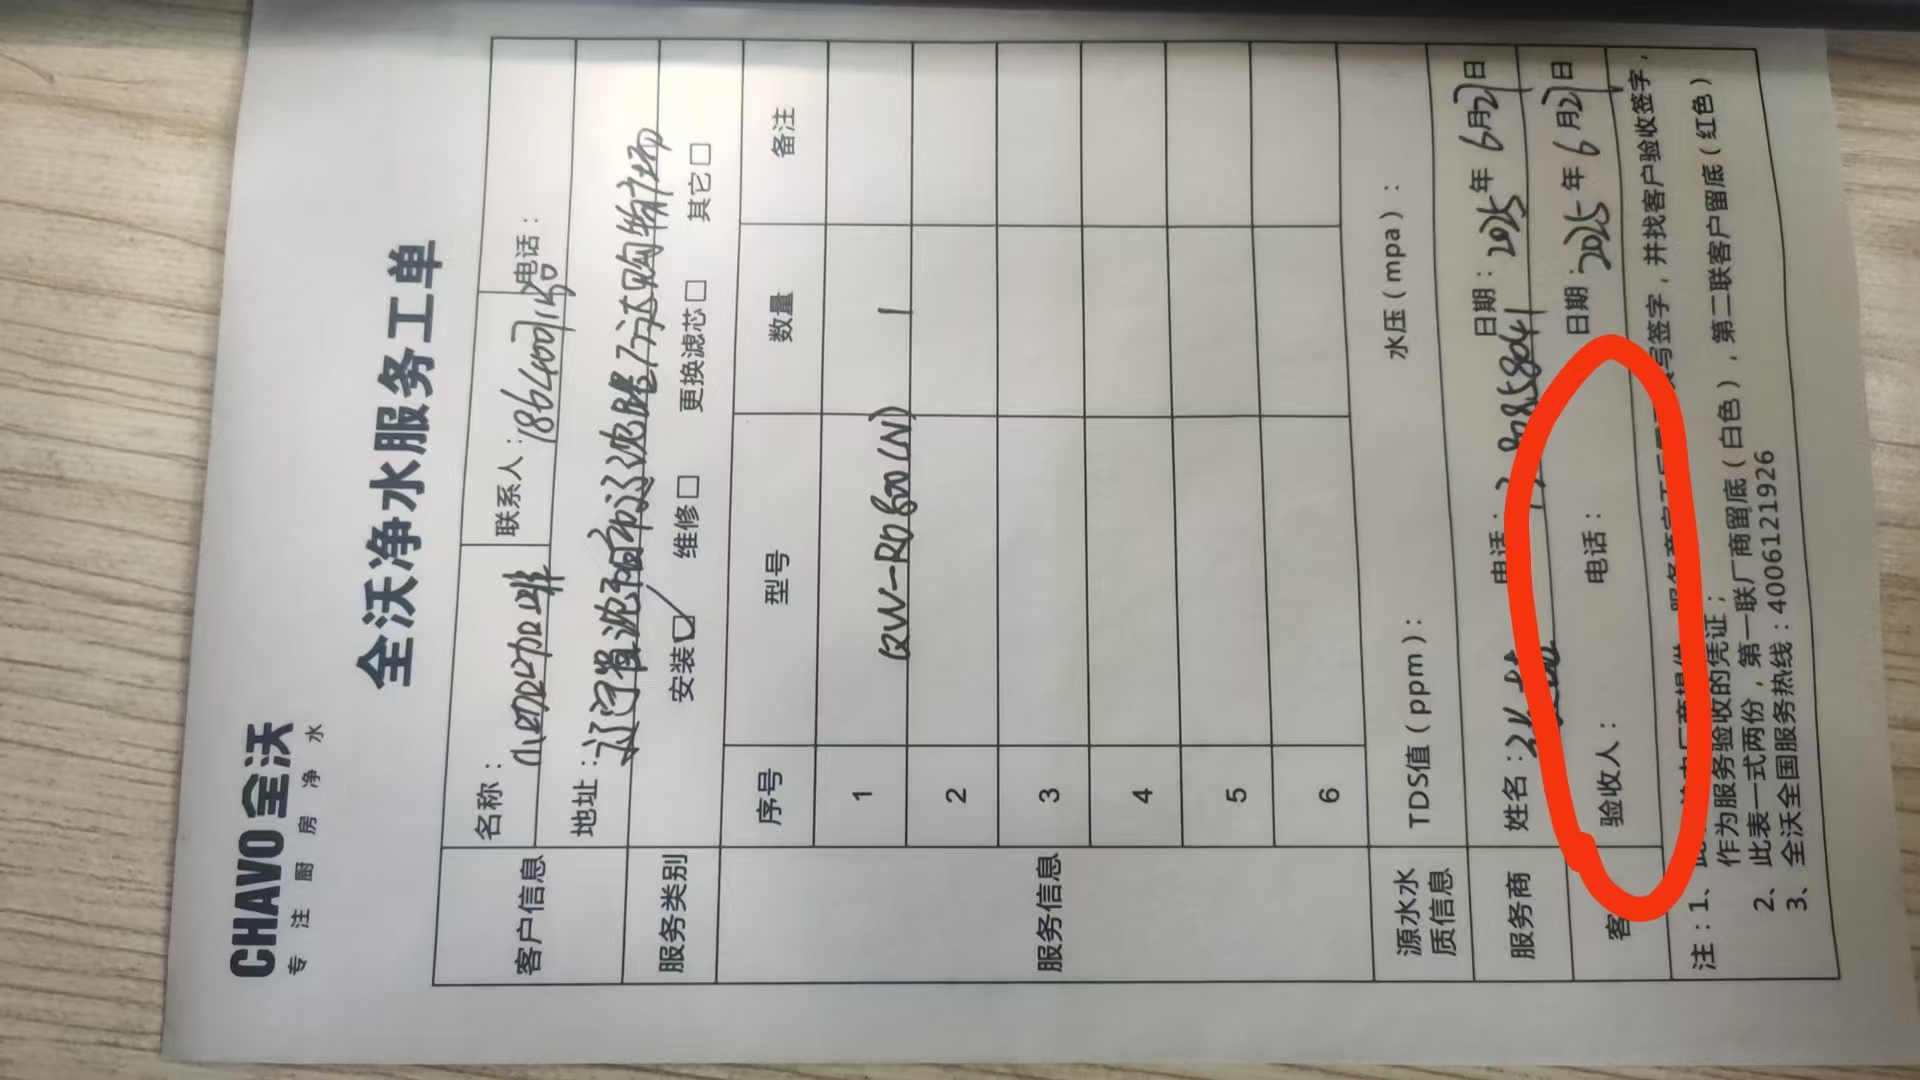 CHAVO 全沃
专注厨房净水
全沃净水服务工单
客户信息 名称： 联系人：186400 电话：
地址：辽宁省沈阳市辽沈 万达购物广场
服务类别 安装☑ 维修□ 更换滤芯□ 其它□
服务信息 序号 型号 数量 备注
1 QW-RO600(N) 1
2
3
4
5
6
源水水质信息 TDS值（ppm）： 水压（mpa）：
服务商 姓名： 电话： 日期：2025年6月21日
客 验收人： 电话： 日期：2025年6月21日
注：1、 写签字，并找客户验收签字，
作为服务验收的凭证；
2、此表一式两份，第一联厂商留底（白色），第二联客户留底（红色）
3、全沃全国服务热线：4006121926